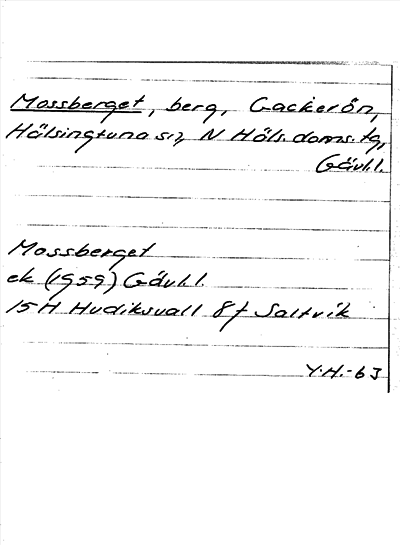 Mossberget, berg, Gackerön,
Hälsingtuna sn, N Häls. doms. tg,
Gävl.l.
Mossberget
ek (1959) Gävl.l.
15H Hudiksvall 8f Saltvik
Y.H.-63